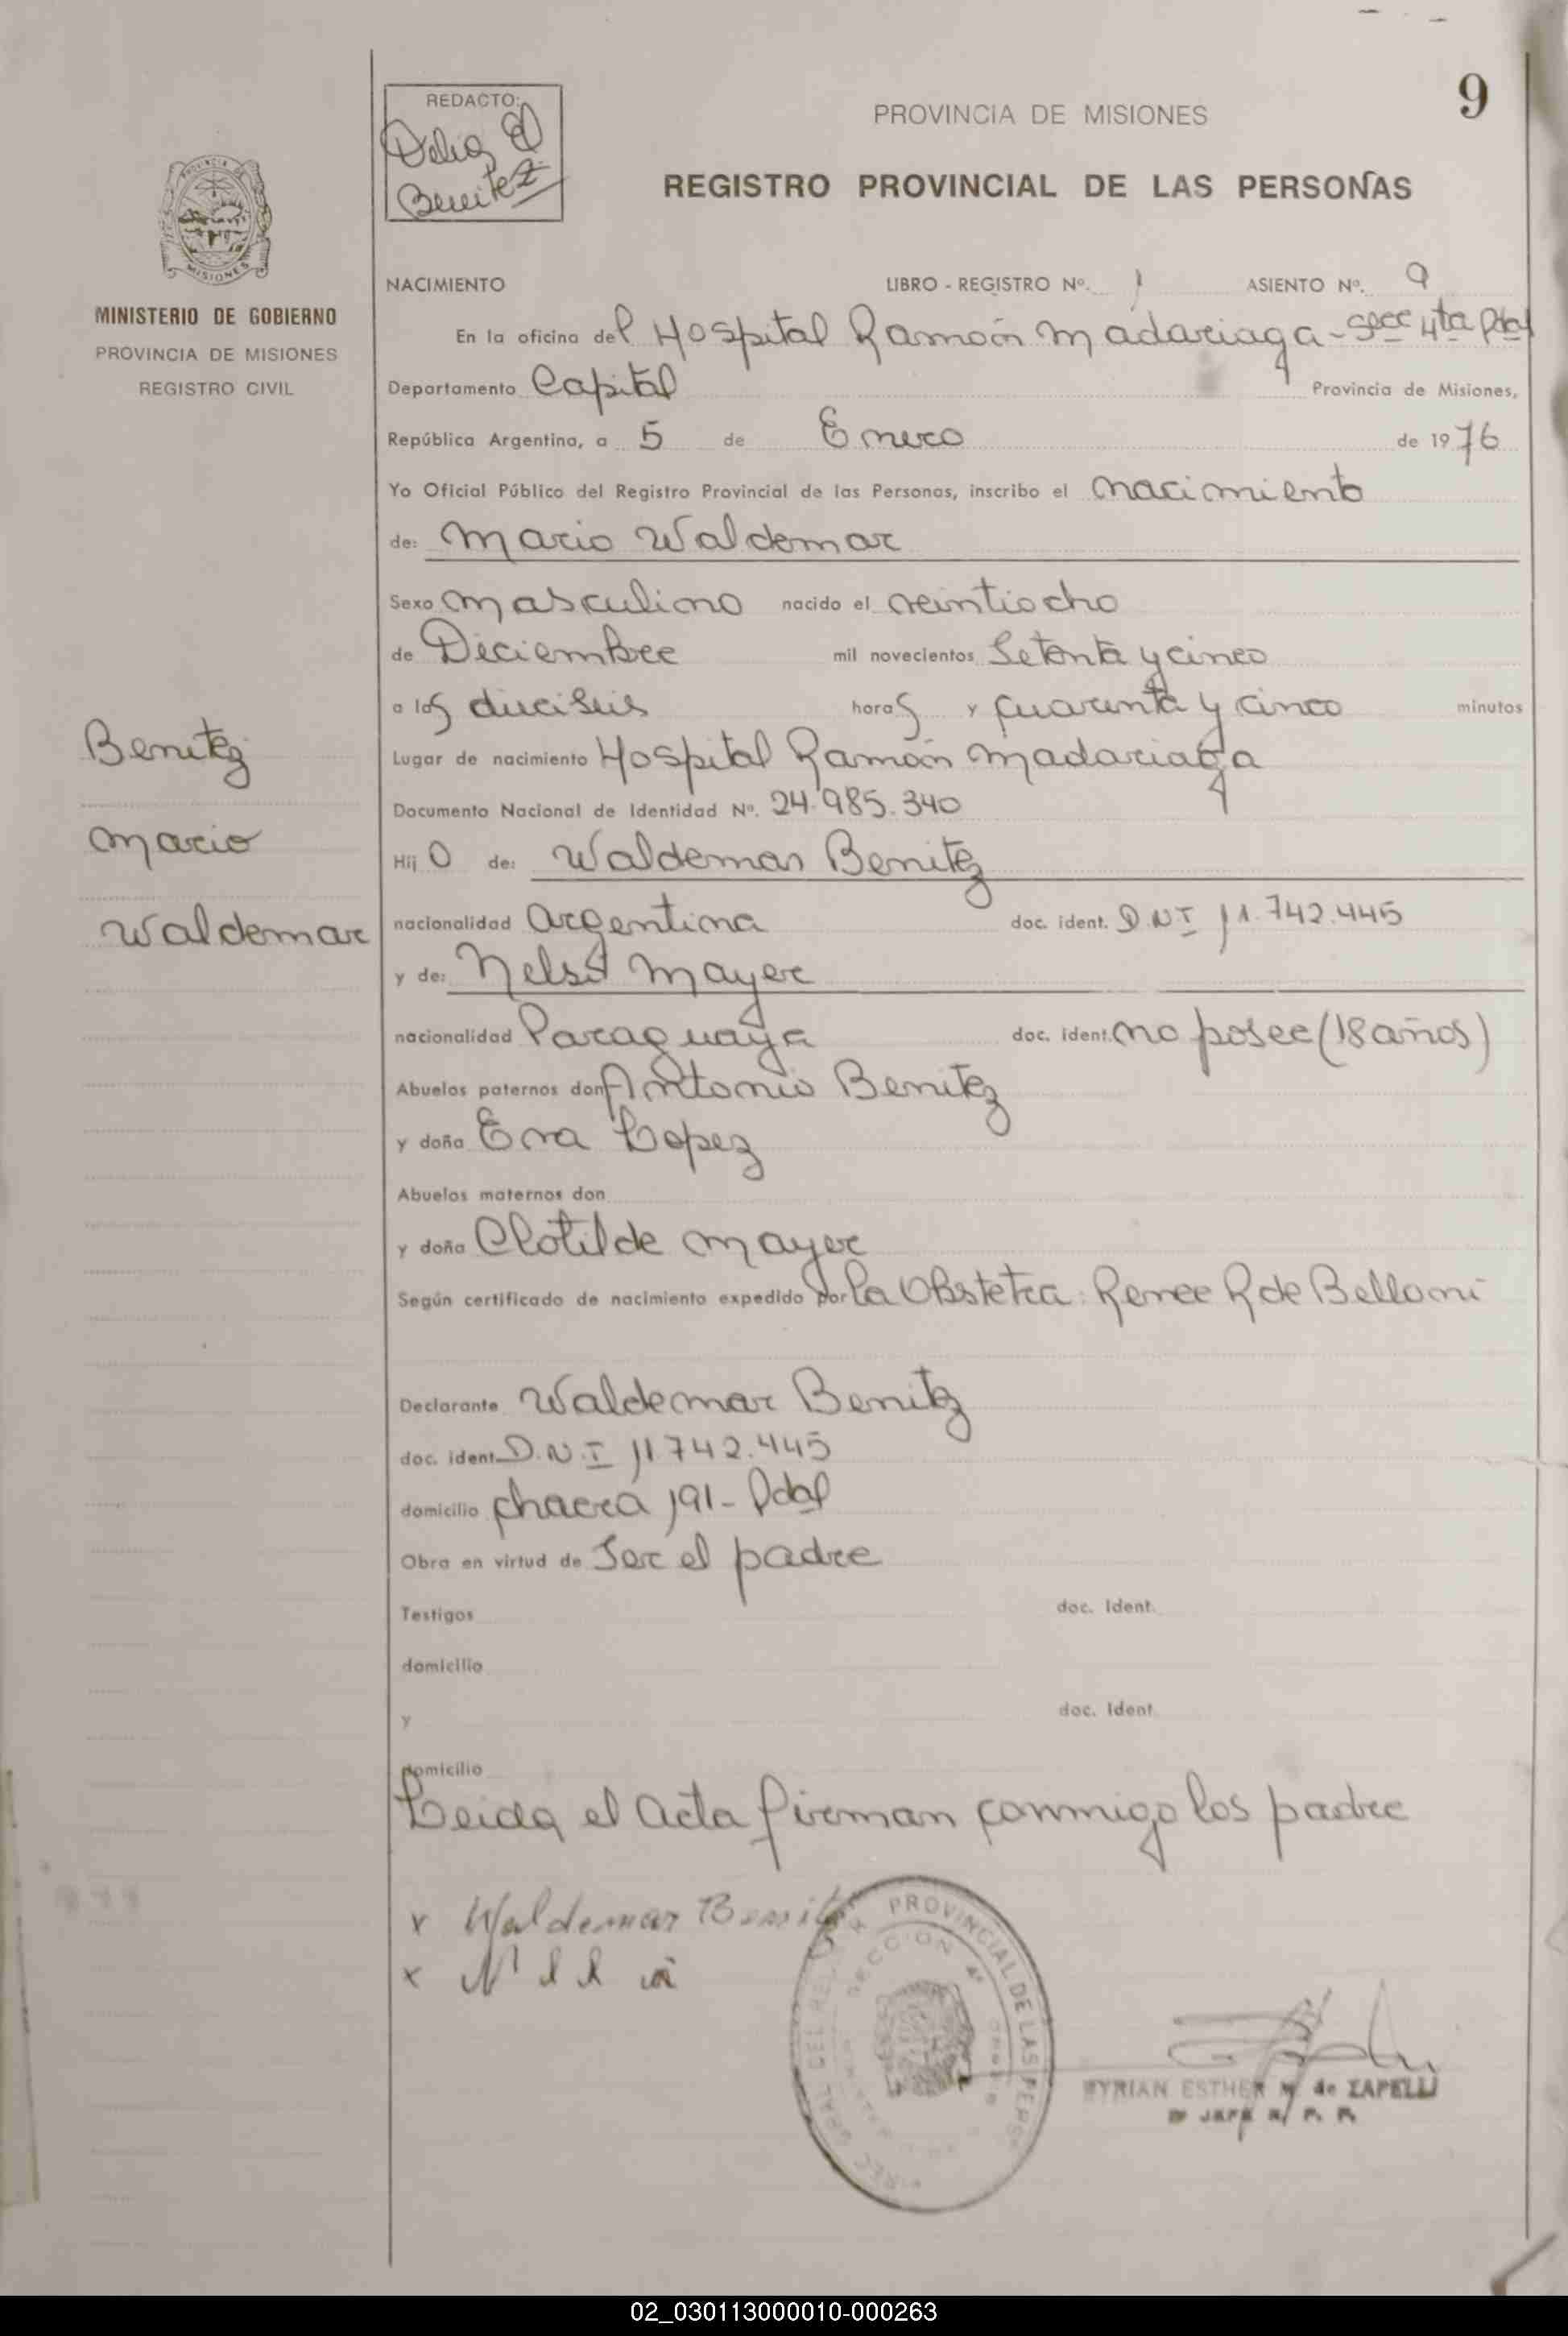 9
REDACTO:
Delia El
Benitez
PROVINCIA DE MISIONES
REGISTRO PROVINCIAL DE LAS PERSONAS
MISIONES
MINISTERIO DE GOBIERNO
PROVINCIA DE MISIONES
REGISTRO CIVIL
Benitez
Mario
Waldemar
NACIMIENTO LIBRO - REGISTRO Nº. 1 ASIENTO Nº. 9
En la oficina del Hospital Ramón Madariaga - Secc 4ta Pdas
Departamento Capital Provincia de Misiones,
República Argentina, a 5 de Enero de 1976
Yo Oficial Público del Registro Provincial de las Personas, inscribo el nacimiento
de: Mario Waldemar
Sexo masculino nacido el veintiocho
de Diciembre mil novecientos Setenta y cinco
a las dieciseis horas y cuarenta y cinco minutos
Lugar de nacimiento Hospital Ramón Madariaga
Documento Nacional de Identidad Nº. 24.985.340
Hij o de: Waldemar Benitez
nacionalidad Argentina doc. ident. D.N.I 11.742.445
y de: Mayer
nacionalidad Paraguaya doc. ident. no posee (18 años)
Abuelos paternos don Antonio Benitez
y doña Eva Lopez
Abuelos maternos don
y doña Clotilde Mayer
Según certificado de nacimiento expedido por la Obstetra: Renee R de Belloni
Declarante Waldemar Benitez
doc. ident. D.N.I 11.742.445
domicilio chacra 191 - Pdas
Obra en virtud de Ser el padre
Testigos doc. Ident.
domicilio
y doc. Ident.
domicilio
Leida el Acta firman conmigo los padre
x Waldemar Benitez
x
PROVINCIAL DE LAS PERS
SECCION 4ª
MYRIAN ESTHER M. de ZAPELLI